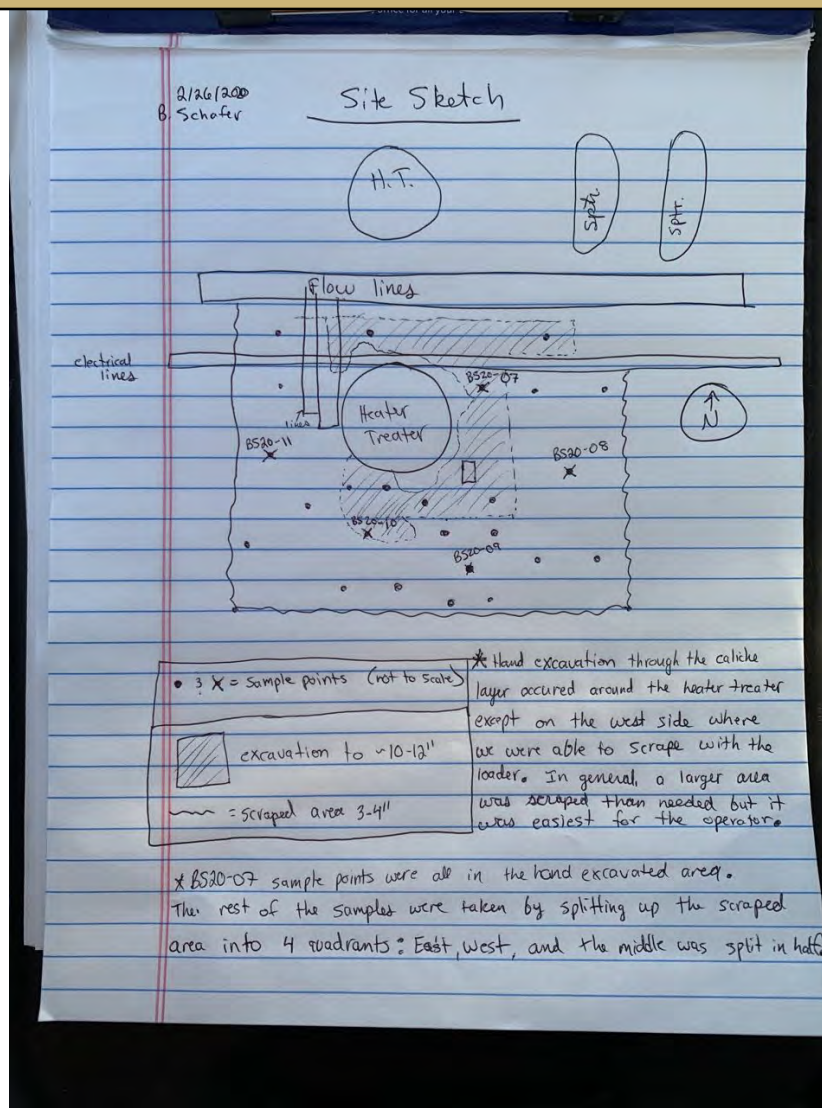 office for all your
2/26/2020
B. Schafer
Site Sketch
H.T.
Sptr.
Sptr.
Flow lines
electrical
lines
lines
Heater
Treater
BS20-07
N
BS20-11
BS20-08
BS20-10
BS20-09
• & X = Sample points (not to scale)
excavation to ~10-12"
= scraped area 3-4"
* Hand excavation through the caliche
layer occured around the heater treater
except on the west side where
we were able to scrape with the
loader. In general, a larger area
was scraped than needed but it
was easiest for the operator.
* BS20-07 sample points were all in the hand excavated area.
The rest of the samples were taken by splitting up the scraped
area into 4 quadrants: East, west, and the middle was split in half.